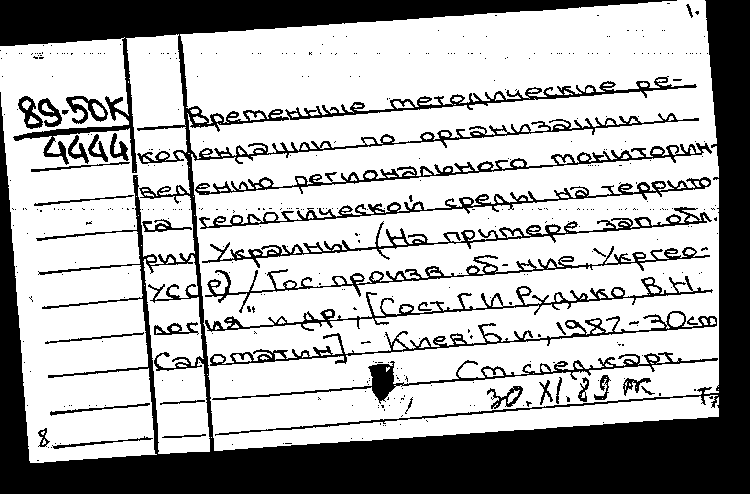 1.
89-50К
4444
Временные методические ре-
комендации по организации и
ведению регионального мониторин-
га геологической среды на террито-
рии Украины: (На примере зап. обл.
УССР) / Гос. произв. об-ние „Укргео-
логия" и др.; [Сост. Г.И. Рудько, В.Н.
Саломатин]. - Киев: Б.и., 1987. - 30 см
См. след. карт.
30.XI.89
8